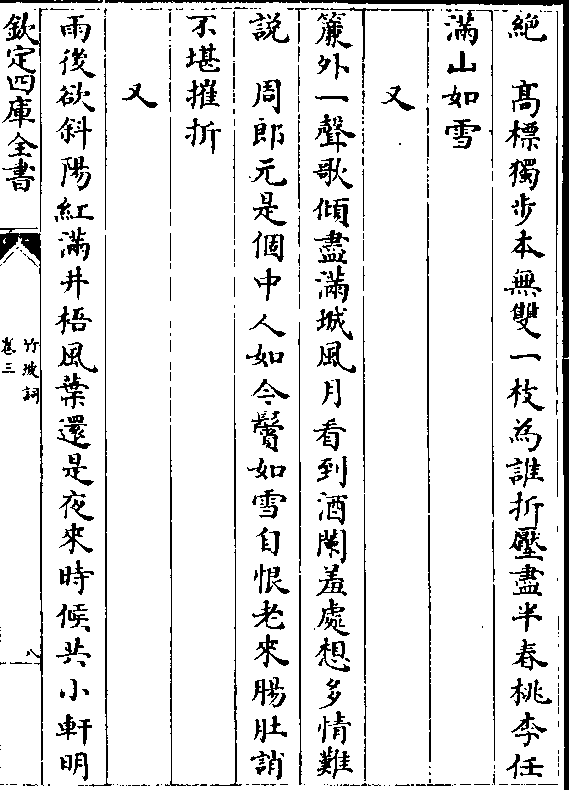 絶　髙標獨步本無雙一枝為誰折壓盡半春桃李任
滿山如雪
又
簾外一聲歌傾盡滿城風月看到酒闌羞處想多情難
説　周郎元是個中人如今鬢如雪自恨老來腸肚誚
不堪摧折
又
雨後欲斜陽紅滿井梧風葉還是夜來時候共小軒明
欽定四庫全書
竹坡詞
卷三
八